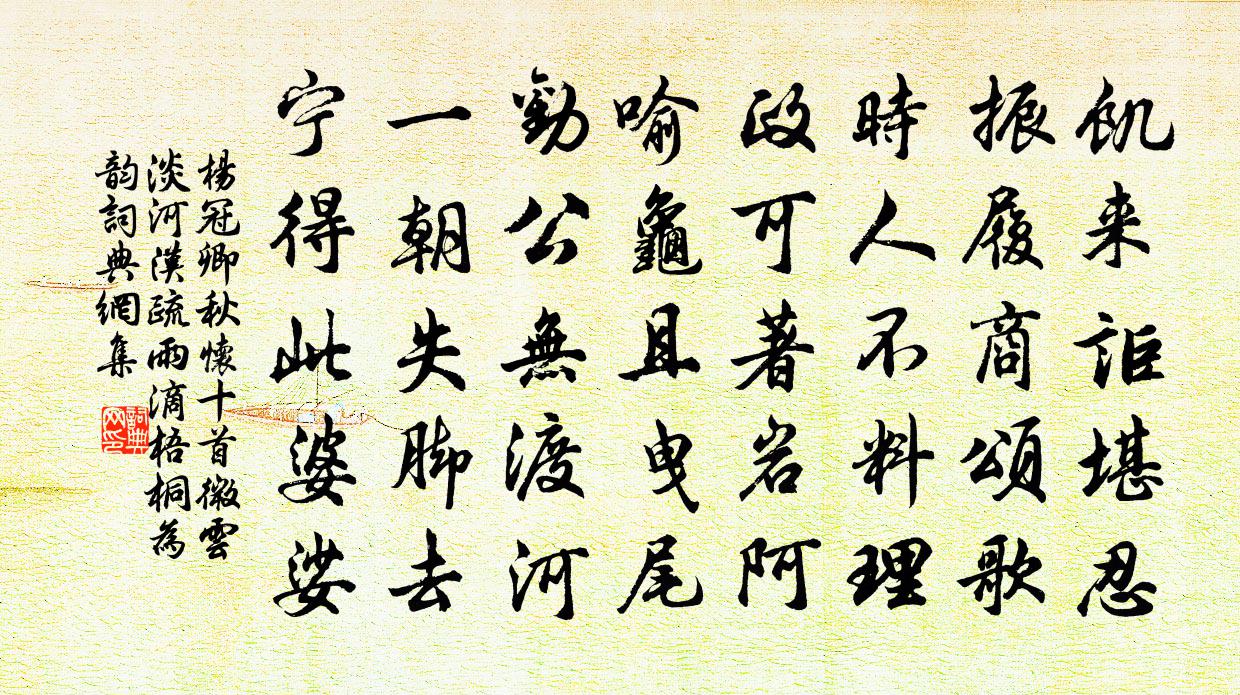 飢来詎堪忍
振履商頌歌
時人不料理
政可著岩阿
喻龜且曳尾
勸公無渡河
一朝失脚去
宁得此婆娑
楊冠卿秋懷十首微雲
淡河漢疏雨滴梧桐為
韵詞典網集
詞典网印